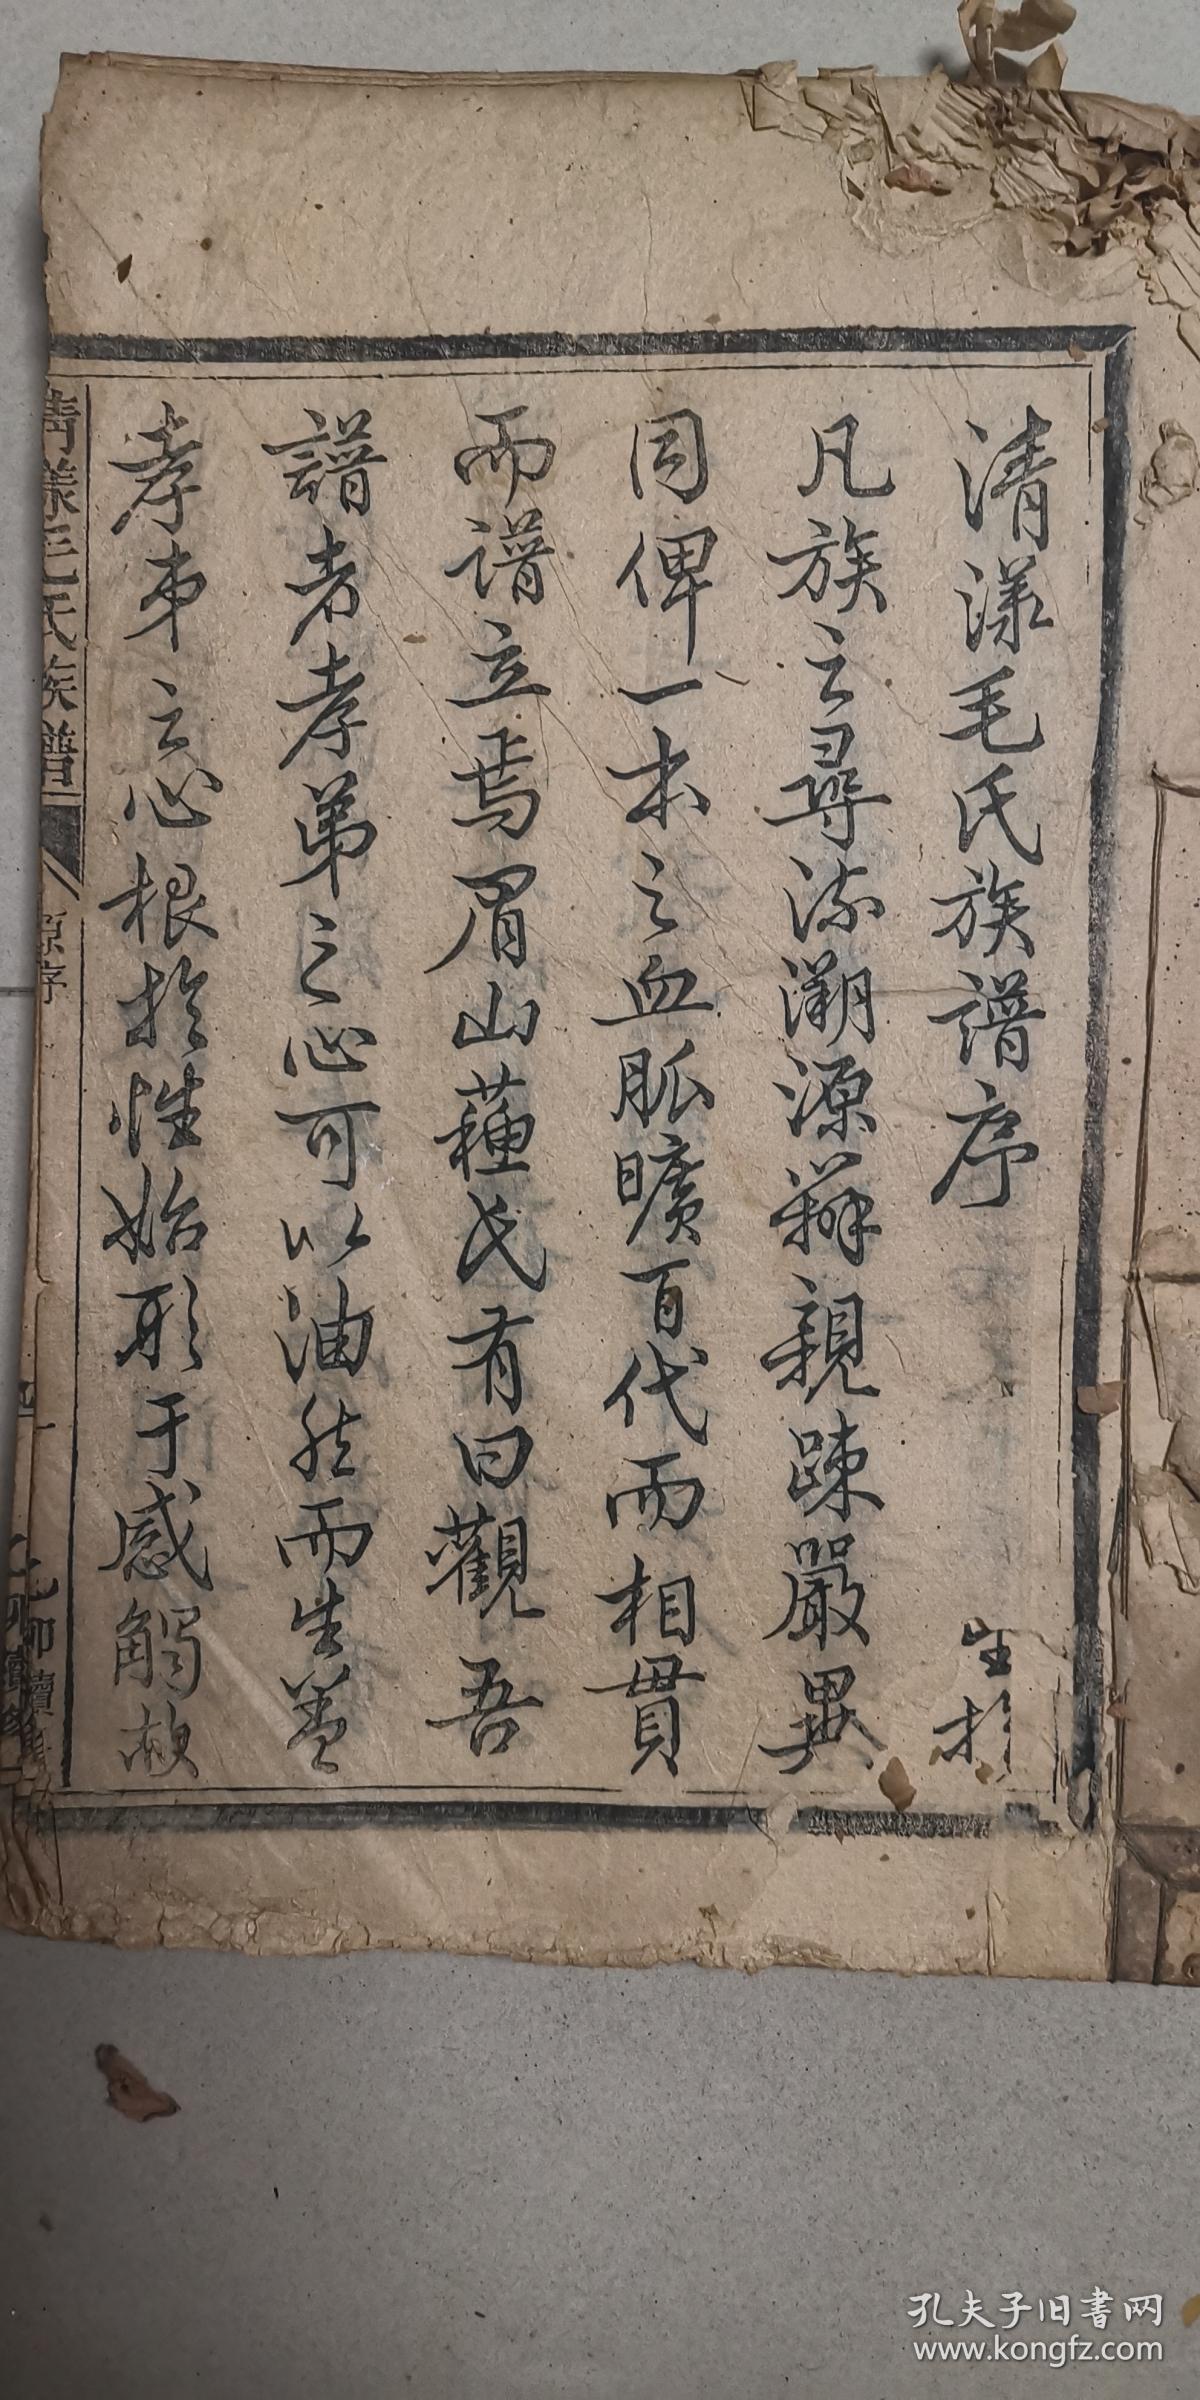 清漾毛氏族譜序
生於
凡族之尋流溯源辨親疎嚴異
同俾一本之血脈曠百代而相貫
而譜立焉眉山蘓氏有曰觀吾
譜者孝弟之心可以油然而生蓋
孝弟之心根於性始形于感觸故
清漾毛氏族譜
原序
乙卯續修
孔夫子旧書网
www.kongfz.com